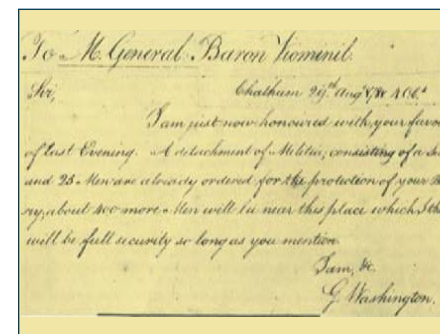 To M. General Baron Viomenil.
Sir, Chatham 29th Aug
I am just now honoured with your favo
of Last Evening. A detachment of Militia, consisting of a
and 25 Men are already ordered for the protection of your
ry, about 400 more Men will lie near this place which I th
will be full security so long as you mention
I am, &c.
G. Washington.